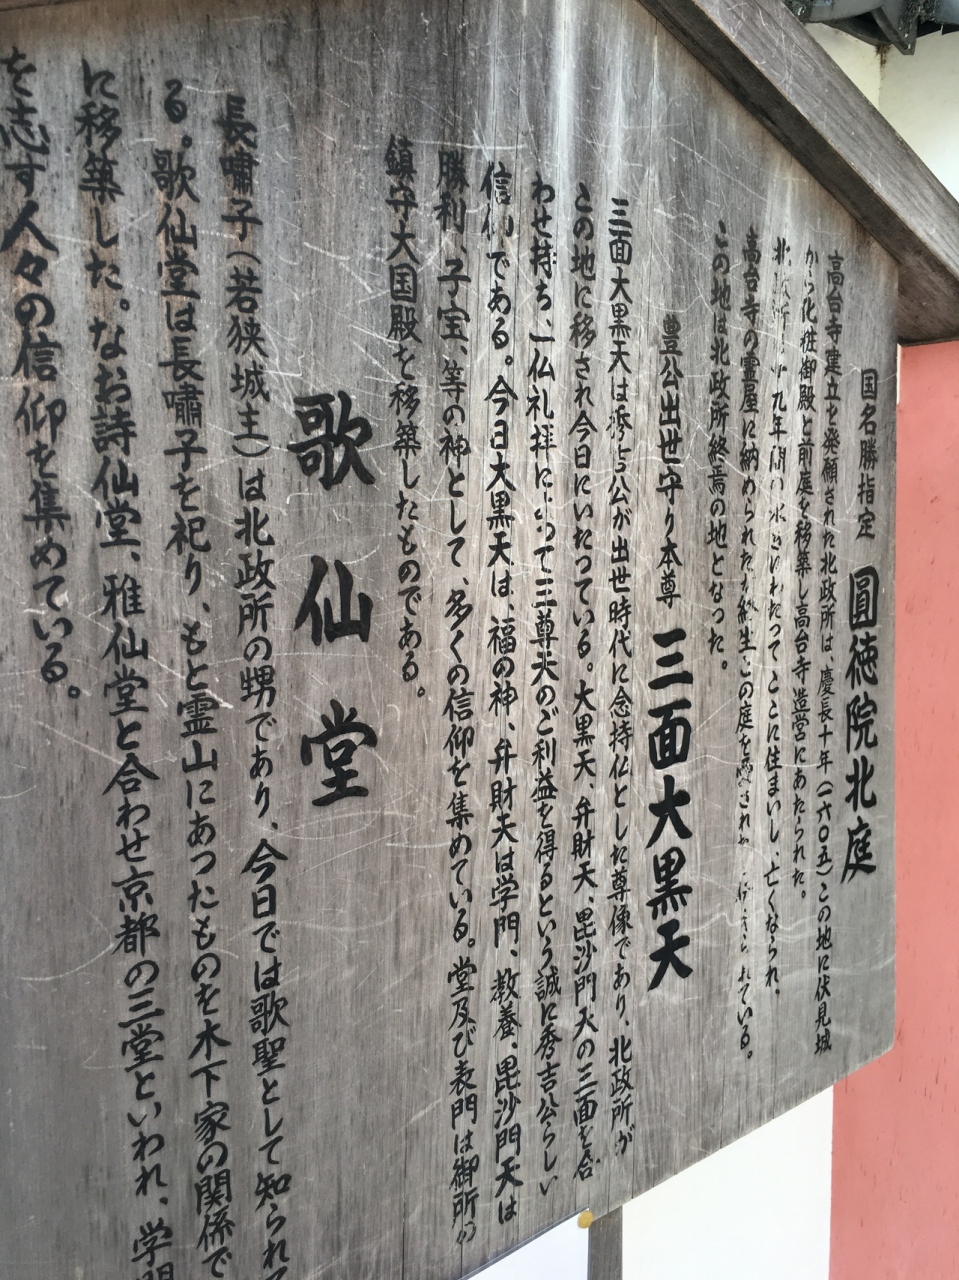 国名勝指定 圓徳院北庭
高台寺建立を発願された北政所は、慶長十年(一六〇五)この地に伏見城
から化粧御殿と前庭を移築し高台寺造営にあたられた。
北政所は 九年間 わたってここに住まいし、亡くなられ、
高台寺の霊屋に納められたが終生この庭を愛され られている。
この地は北政所終焉の地となった。
豊公出世守り本尊 三面大黒天
三面大黒天は秀吉公が出世時代に念持仏とした尊像であり、北政所が
この地に移され今日にいたっている。大黒天、弁財天、毘沙門天の三面を合
わせ持ち、一仏礼拝によって三尊天のご利益を得るという誠に秀吉公らしい
信仰である。今日大黒天は、福の神、弁財天は学門、教養、毘沙門天は
勝利、子宝、等の神として、多くの信仰を集めている。堂及び表門は御所の
鎮守大国殿を移築したものである。
歌仙堂
長嘯子(若狭城主)は北政所の甥であり、今日では歌聖として知られて
る。歌仙堂は長嘯子を祀り、もと霊山にあつたものを木下家の関係で
に移築した。なお詩仙堂、雅仙堂と合わせ京都の三堂といわれ、学問
を志す人々の信仰を集めている。